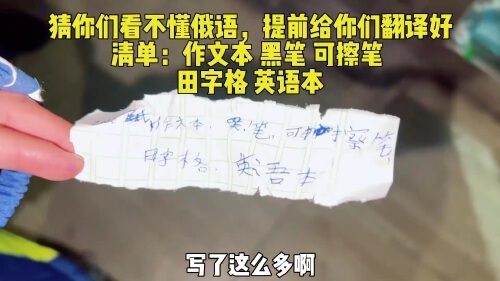 猜你们看不懂俄语，提前给你们翻译好
清单：作文本 黑笔 可擦笔
田字格 英语本
作文本、黑笔、可擦笔
田字格、英语本
写了这么多啊